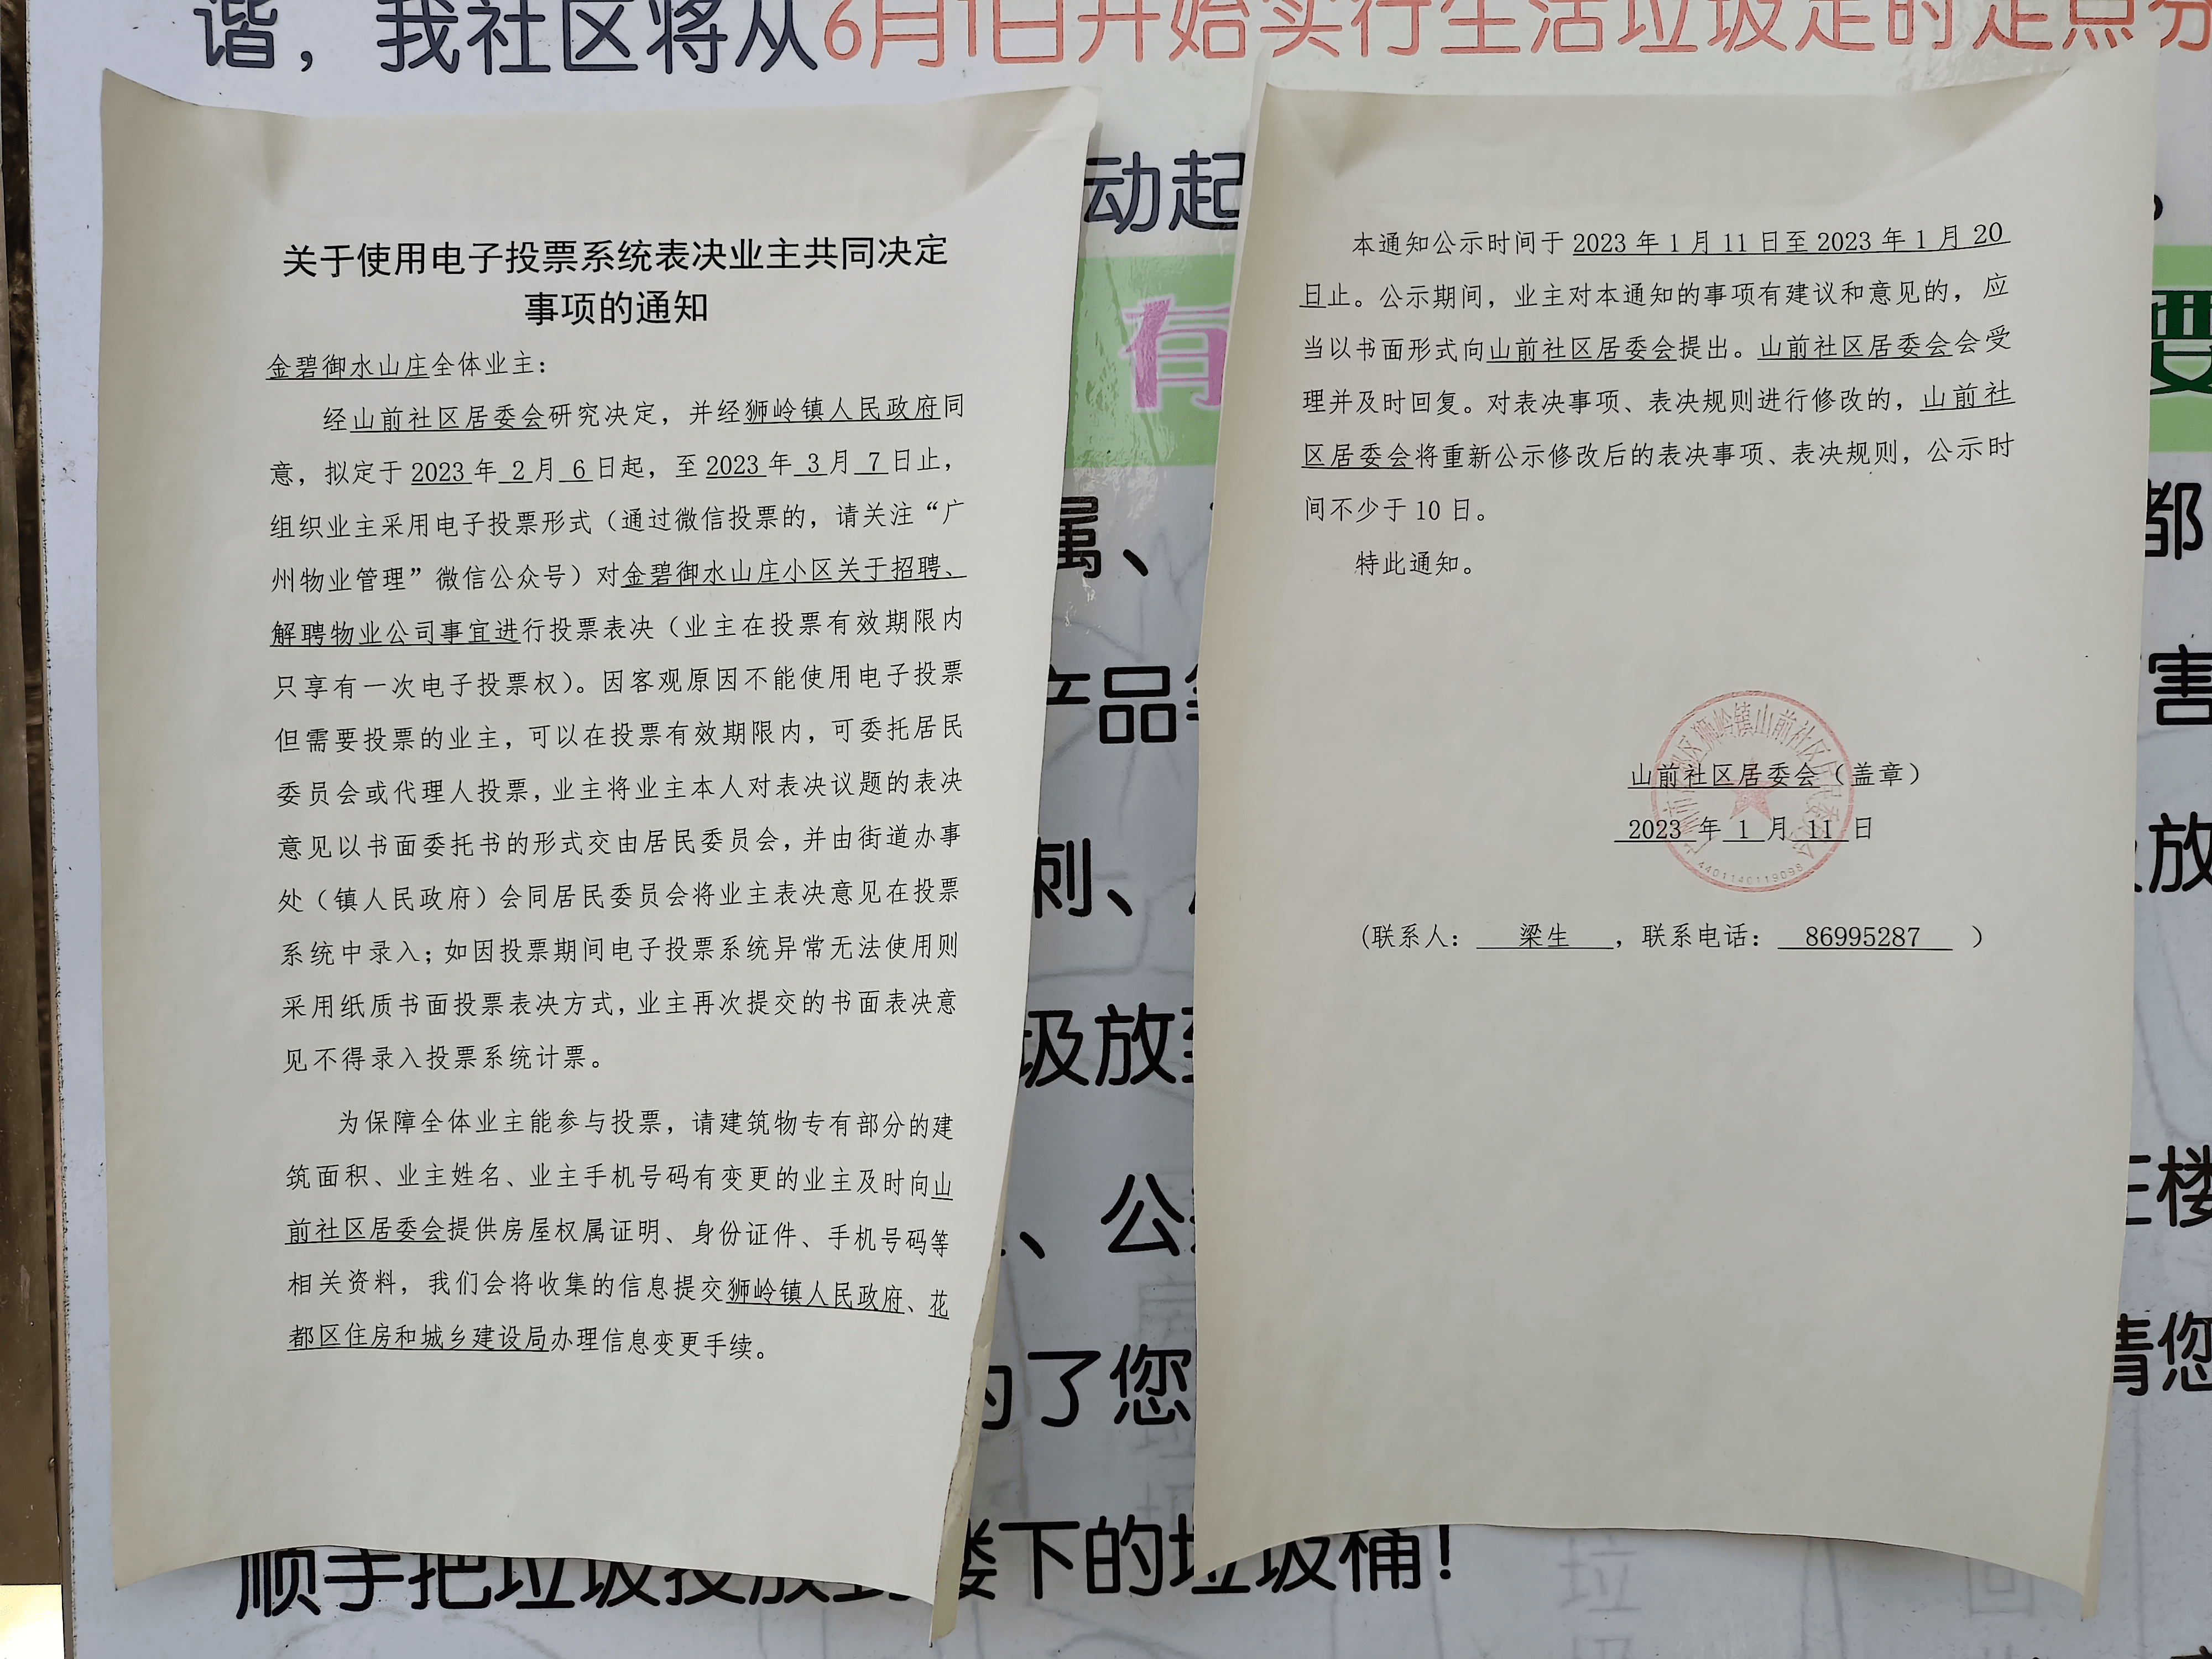 谐，我社区将从6月1日开始实行生活垃圾定时定点分
动起
有
要
属、
都
产品
害
刺、
放
圾放到
、公
楼
为了您
请您
顺手把垃圾投放到楼下的垃圾桶！
关于使用电子投票系统表决业主共同决定
事项的通知
金碧御水山庄全体业主：
经山前社区居委会研究决定，并经狮岭镇人民政府同
意，拟定于 2023 年 2 月 6 日起，至 2023 年 3 月 7 日止，
组织业主采用电子投票形式（通过微信投票的，请关注“广
州物业管理”微信公众号）对金碧御水山庄小区关于招聘、
解聘物业公司事宜进行投票表决（业主在投票有效期限内
只享有一次电子投票权）。因客观原因不能使用电子投票
但需要投票的业主，可以在投票有效期限内，可委托居民
委员会或代理人投票，业主将业主本人对表决议题的表决
意见以书面委托书的形式交由居民委员会，并由街道办事
处（镇人民政府）会同居民委员会将业主表决意见在投票
系统中录入；如因投票期间电子投票系统异常无法使用则
采用纸质书面投票表决方式，业主再次提交的书面表决意
见不得录入投票系统计票。
为保障全体业主能参与投票，请建筑物专有部分的建
筑面积、业主姓名、业主手机号码有变更的业主及时向山
前社区居委会提供房屋权属证明、身份证件、手机号码等
相关资料，我们会将收集的信息提交狮岭镇人民政府、花
都区住房和城乡建设局办理信息变更手续。
本通知公示时间于 2023 年 1 月 11 日至 2023 年 1 月 20
日止。公示期间，业主对本通知的事项有建议和意见的，应
当以书面形式向山前社区居委会提出。山前社区居委会会受
理并及时回复。对表决事项、表决规则进行修改的，山前社
区居委会将重新公示修改后的表决事项、表决规则，公示时
间不少于 10 日。
特此通知。
山前社区居委会（盖章）
2023 年 1 月 11 日
4401140119098
（联系人： 梁生 ，联系电话： 86995287 ）